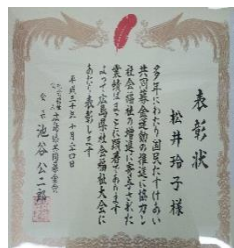 表彰状
松井玲子様
多年にわたり国民たすけあい
共同募金運動の推進に協力し
社会福祉の増進に寄与された
業績はまことに顕著であります
よって広島県社会福祉大会に
あたり表彰します
平成三十年十月二四日
広島県共同募金会
会長 池谷公二郎